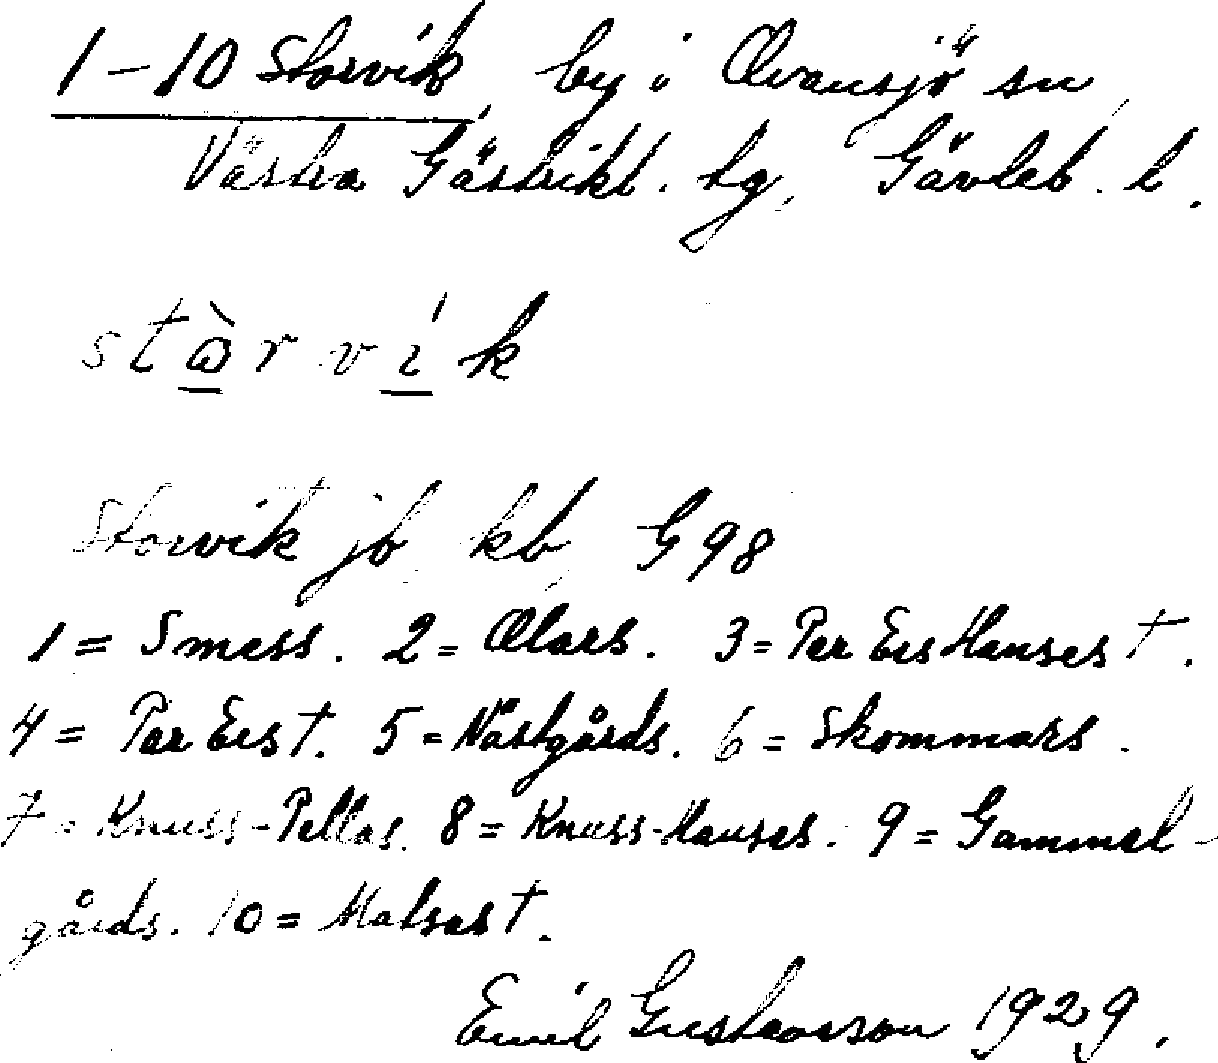 1–10 Storvik, by i Ovansjö sn,
Västra Gästrikl. tg, Gävleb. l.
stɷ̀rvík
Storvik jb, kb, G 98
1 = Smess. 2 = Olars. 3 = Per Ers Hanses †.
4 = Par Ers †. 5 = Nästgårds. 6 = Skommars.
7 = Knuss-Pellas. 8 = Knuss-Hanses. 9 = Gammel-
gårds. 10 = Matsas †.
Emil Gustavsson 1929.